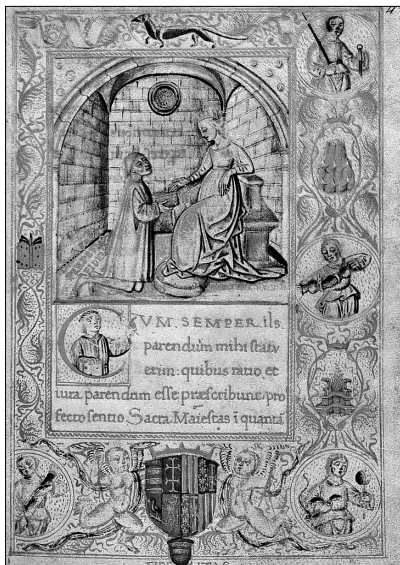 CVM. SEMPER. iis.
parendum mihi statu
erim: quibus ratio et
iura parendum esse præscribunt: pro
fecto sentio Sacra Maiestas i quanta